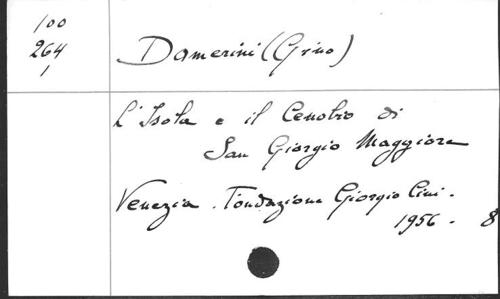 100
264
1
Damerini (Gino)
L'Isola e il Cenobio di
San Giorgio Maggiore
Venezia. Fondazione Giorgio Cini.
1956 - 8